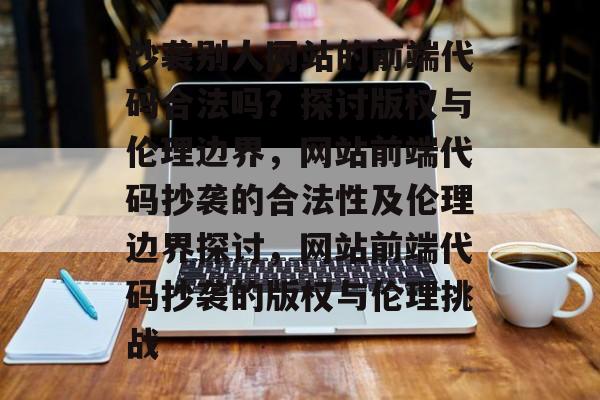 抄袭别人网站的前端代
码合法吗？探讨版权与
伦理边界，网站前端代
码抄袭的合法性及伦理
边界探讨，网站前端代
码抄袭的版权与伦理挑
战